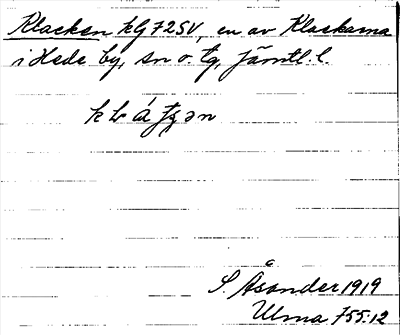 Klacken kG 725V, en av Klackarna
i Hede by, sn o. tg, Jämtl. l.
S. Åsander 1919
Ulma 755:12